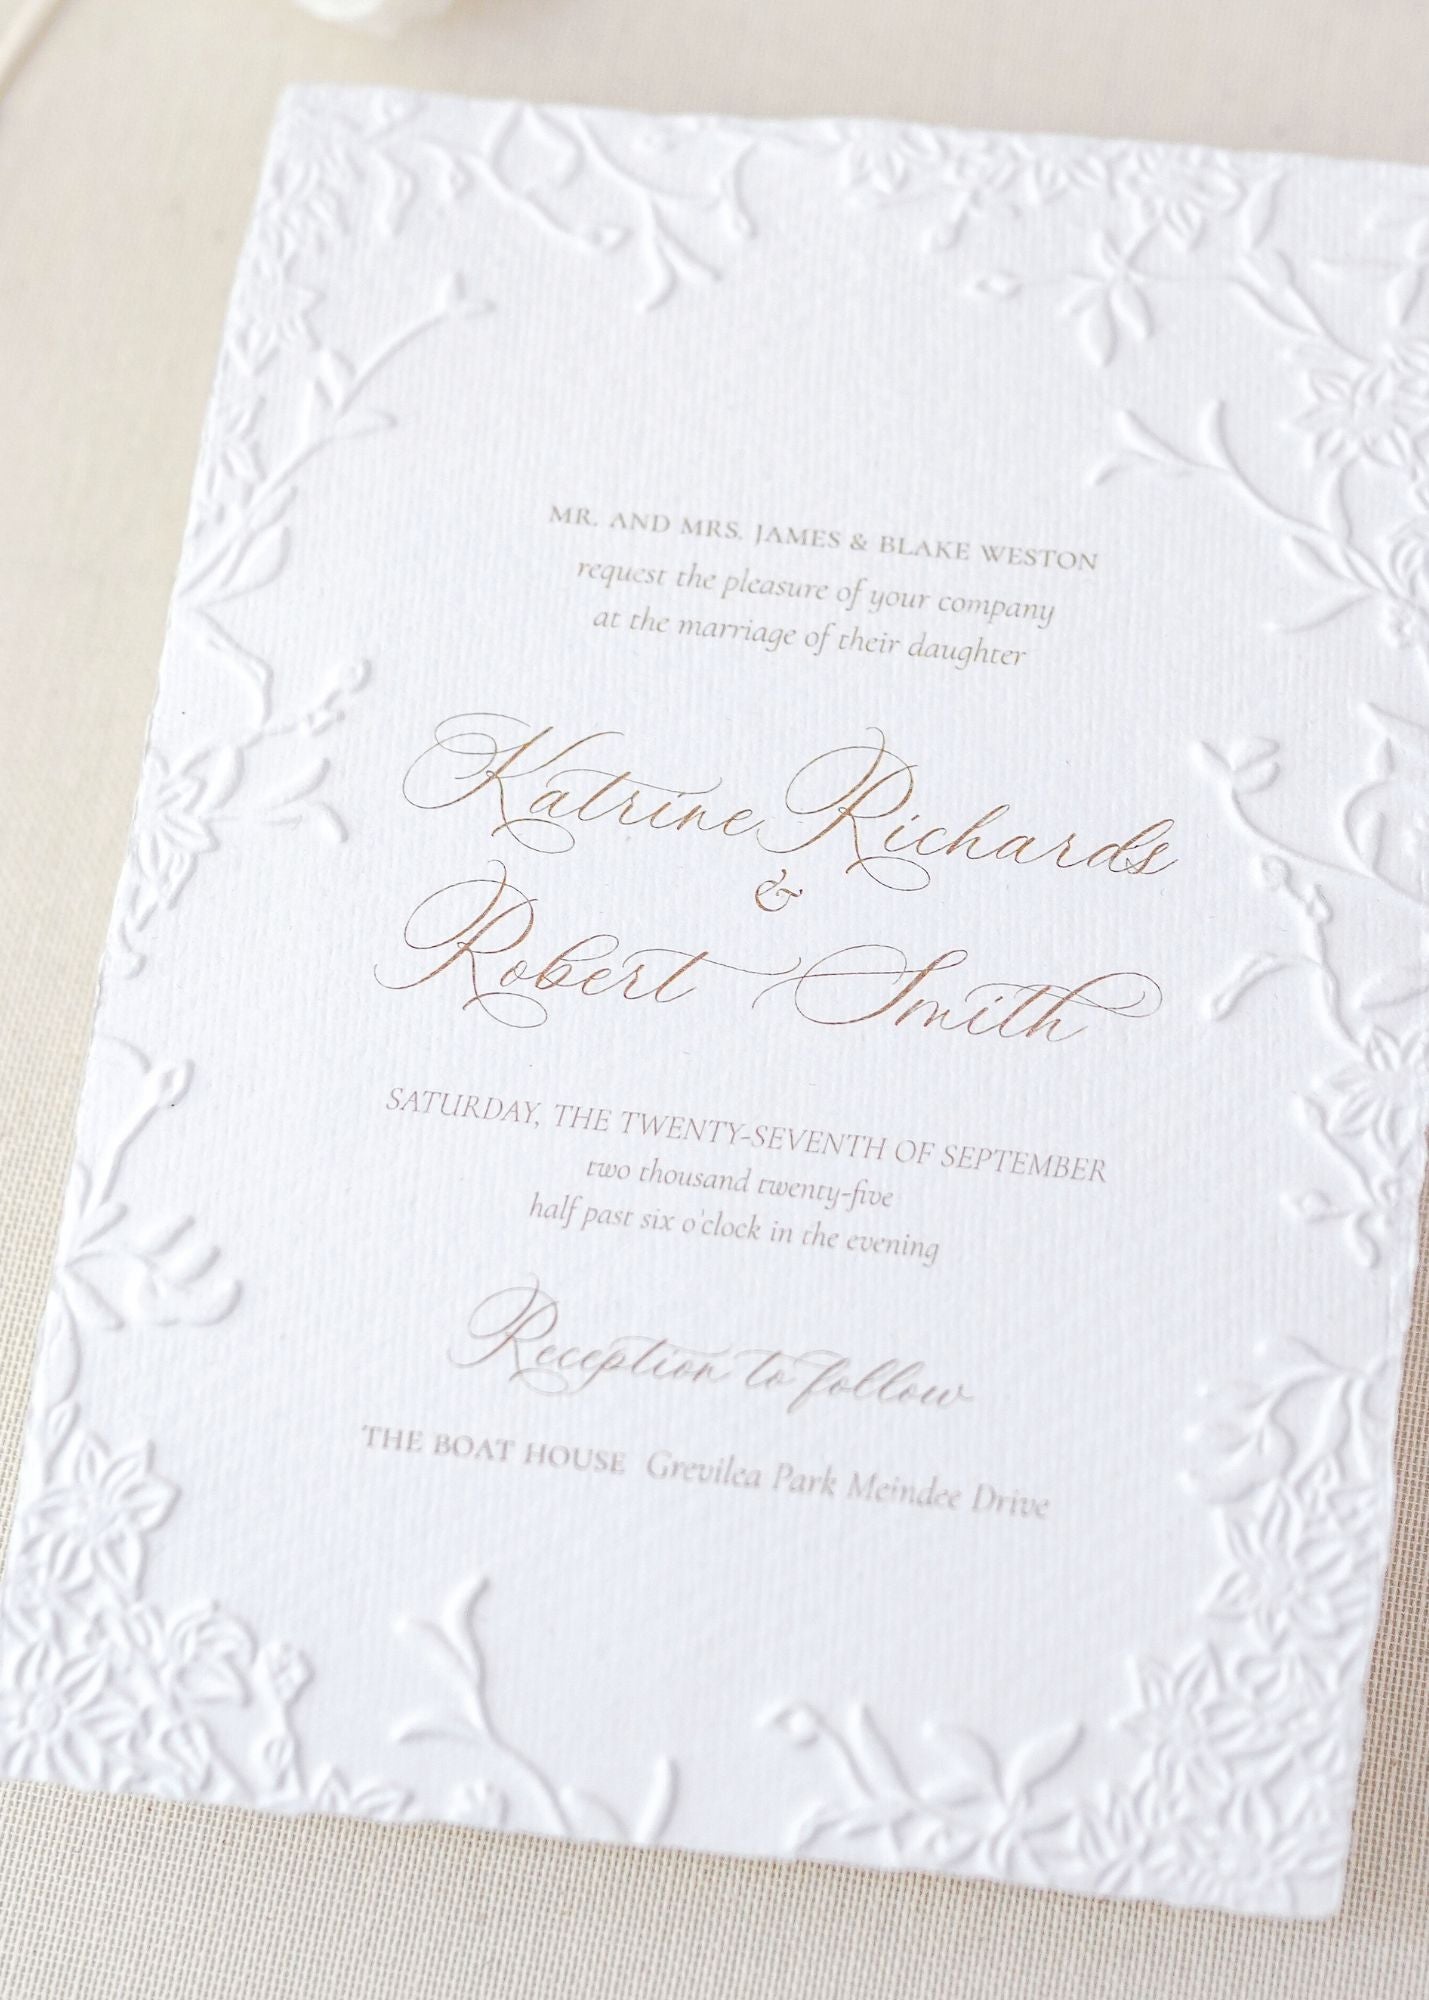 MR. AND MRS. JAMES & BLAKE WESTON
request the pleasure of your company
at the marriage of their daughter
Katrine Richards
&
Robert Smith
SATURDAY, THE TWENTY-SEVENTH OF SEPTEMBER
two thousand twenty-five
half past six o'clock in the evening
Reception to follow
THE BOAT HOUSE Grevilea Park Meindee Drive